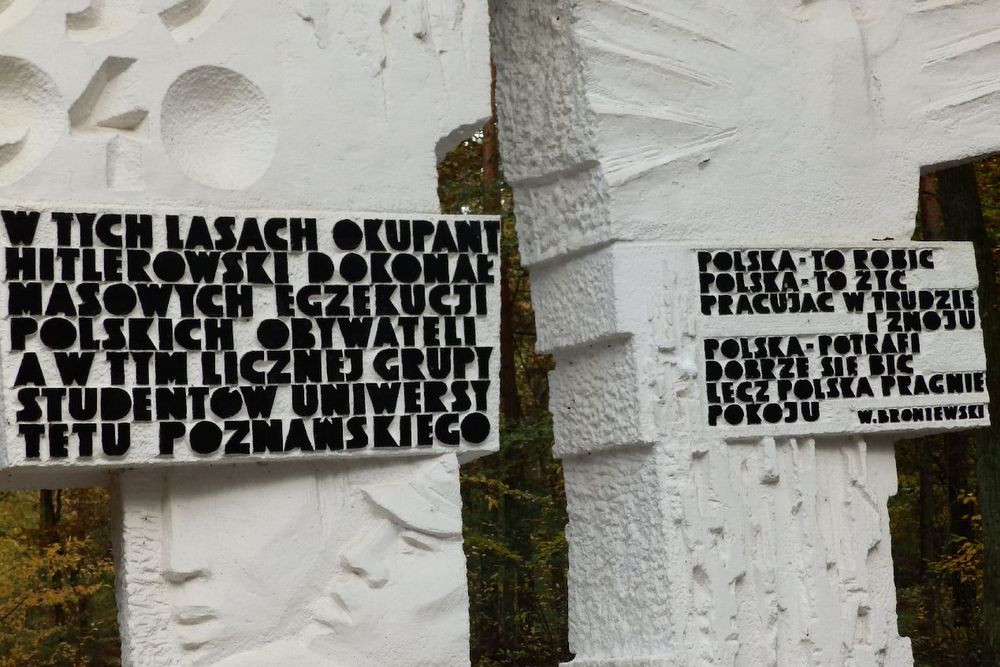 940
W TYCH LASACH OKUPANT
HITLEROWSKI DOKONAŁ
MASOWYCH EGZEKUCJI
POLSKICH OBYWATELI
A W TYM LICZNEJ GRUPY
STUDENTÓW UNIWERSY
TETU POZNAŃSKIEGO
POLSKA - TO ROBIĆ
POLSKA - TO ŻYĆ
PRACUJĄC W TRUDZIE
I ZNOJU
POLSKA - POTRAFI
DOBRZE SIĘ BIĆ
LECZ POLSKA PRAGNIE
POKOJU W. BRONIEWSKI